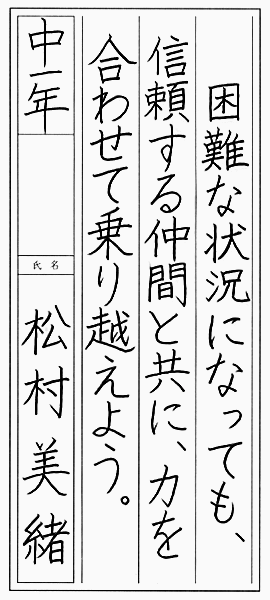 困難な状況になっても、
信頼する仲間と共に、力を
合わせて乗り越えよう。
中一年
氏名
松村美緒